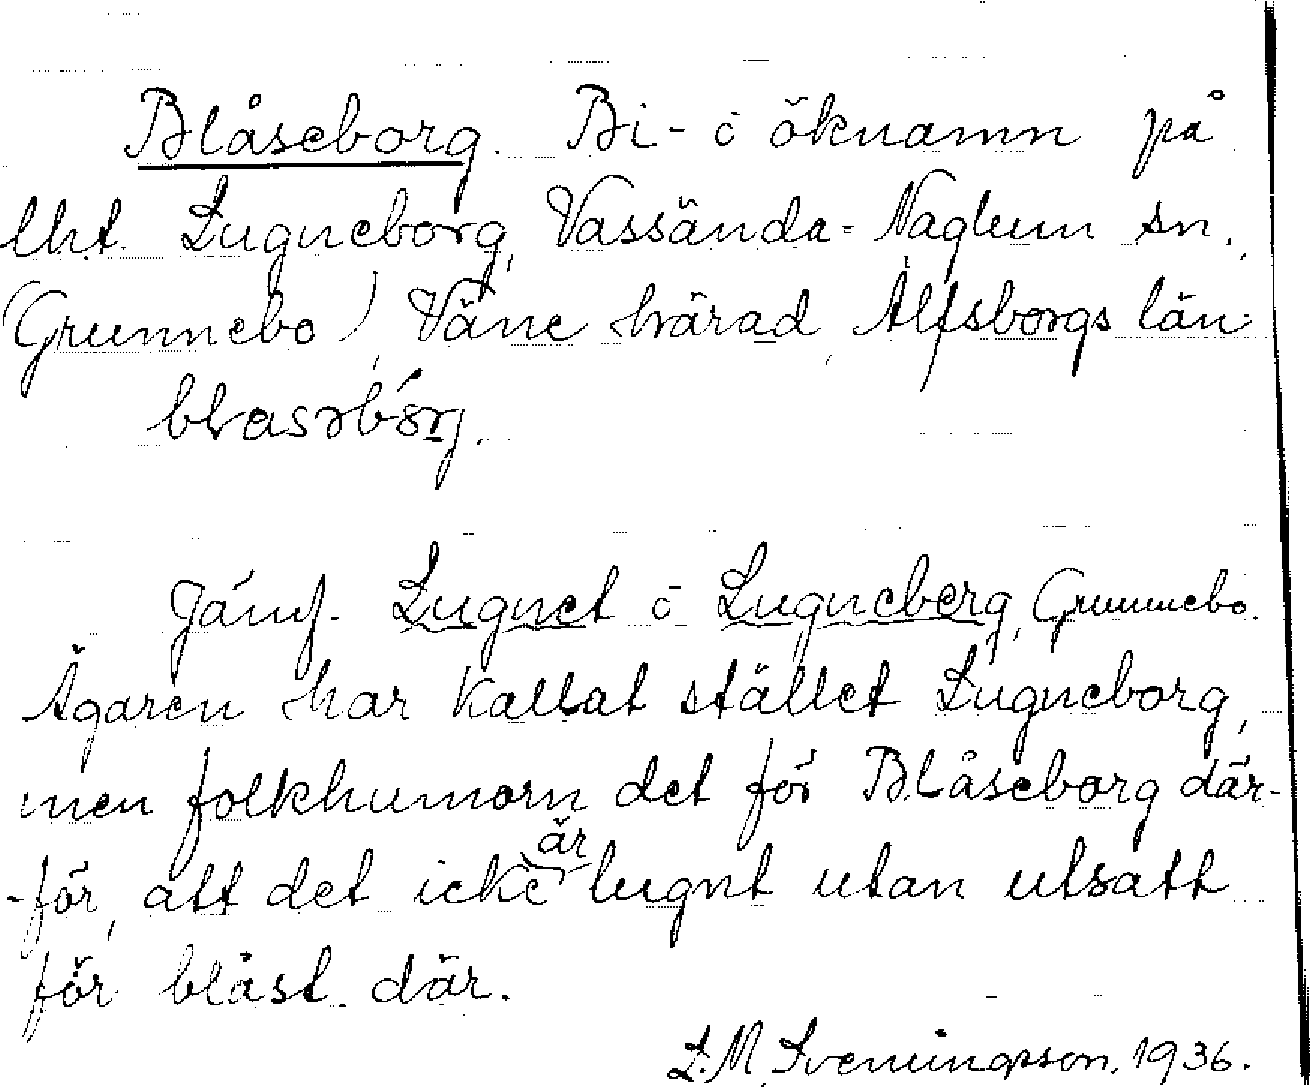 Blåseborg. Bi- o öknamn på
lht. Lugneborg, Vassända-Naglum sn,
(Grunnebo), Väne härad, Älfsborgs län.
Jämf. Lugnet o Lugneberg, Grunnebo.
Ägaren har kallat stället Lugneborg,
men folkhumorn det för Blåseborg där-
-för, att det icke är lugnt utan utsatt
för blåst där.
L.M. Svenningsson. 1936.